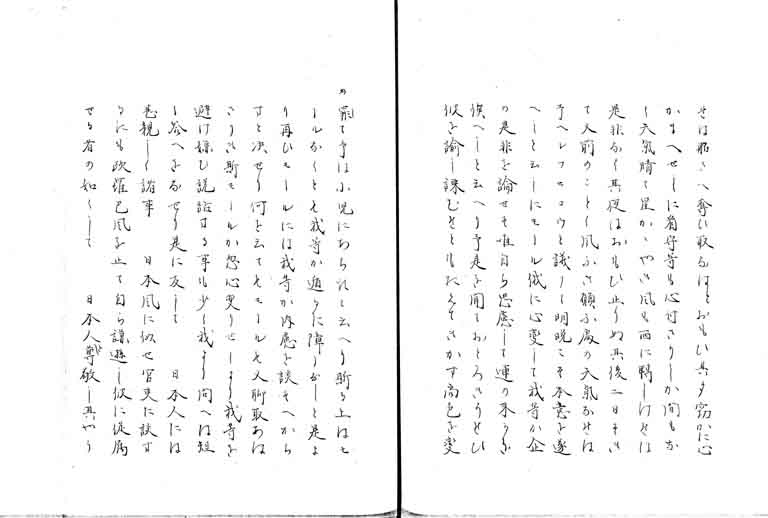 せは船さへ奪ひ取るほとおもい其夕窃かに心
かまへせしに省守等も心付さりしか間もな
し天気晴て星かゝやき風も西に転しけせは
是非なく其夜はおもひ止りぬ其後二日そき
て又前のことく風ふき願ふ處の天気なせは
予ヘレフニコウと議りて明晩こそ本意を遂
へしと云しにモール俄に心変して我等か企
の是非を論せす唯自ら思慮して運の来るを
俟へしと云へり予是を聞ておとろきさりせひ
彼を諭し課むせともたえてきかす尚色を変
の罷て予は小児にあられと云へり斯る上はモ
ールかくとも我等か遁るに障りなしと是よ
り再ひモールには我等か内慮を談そへから
すと决せり何と云てもモールも又脚取あは
さりき斯モールか忽心更りせしより我等を
避け嫌ひ説話する事も少し我より問へは短
し答へをなせり是に反して　日本人には
懇親し諸事　日本風に似せ官吏に談す
るにも欧羅巴風を止て自ら謙遜し彼に従属
せる者の如くして　日本人尊敬し其やう